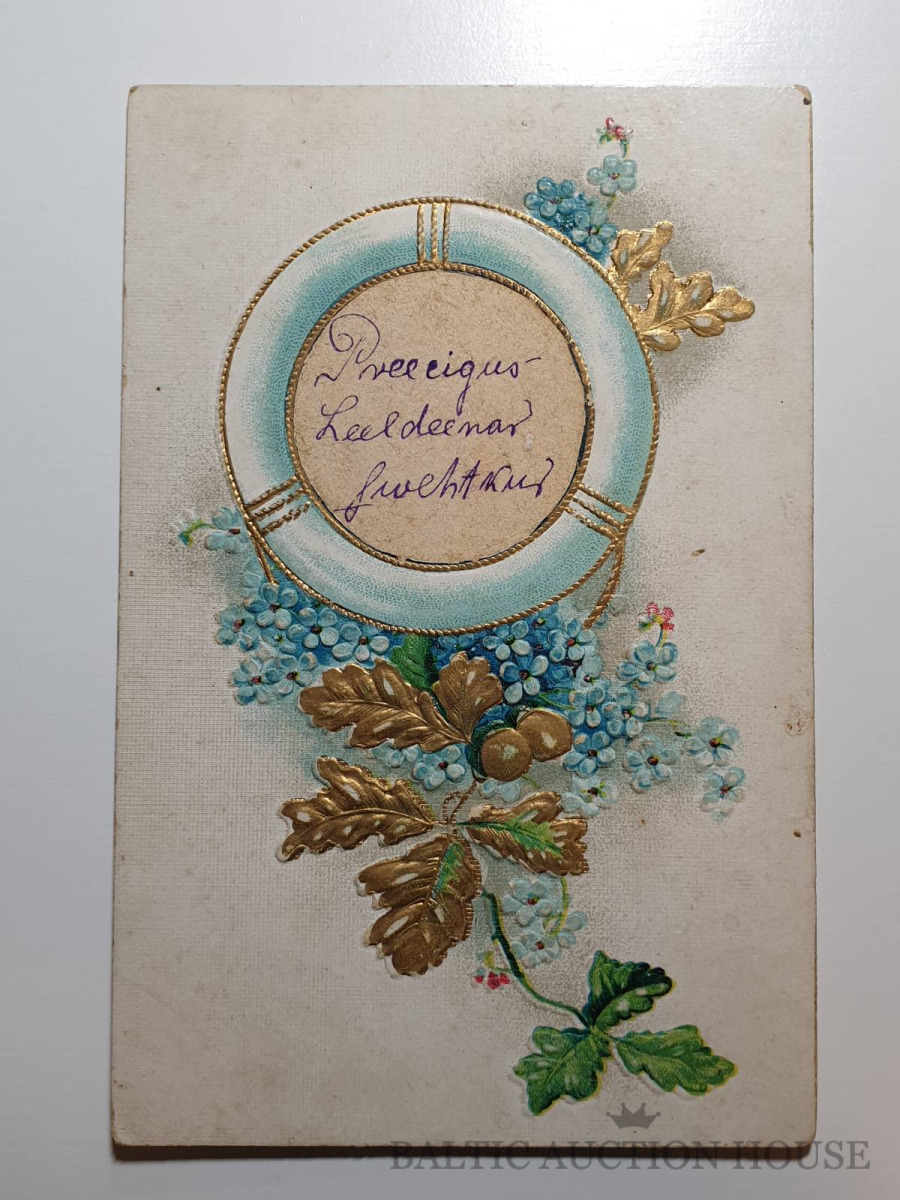 Preecigus
Leeldeenas
swehtkus
BALTIC AUCTION HOUSE